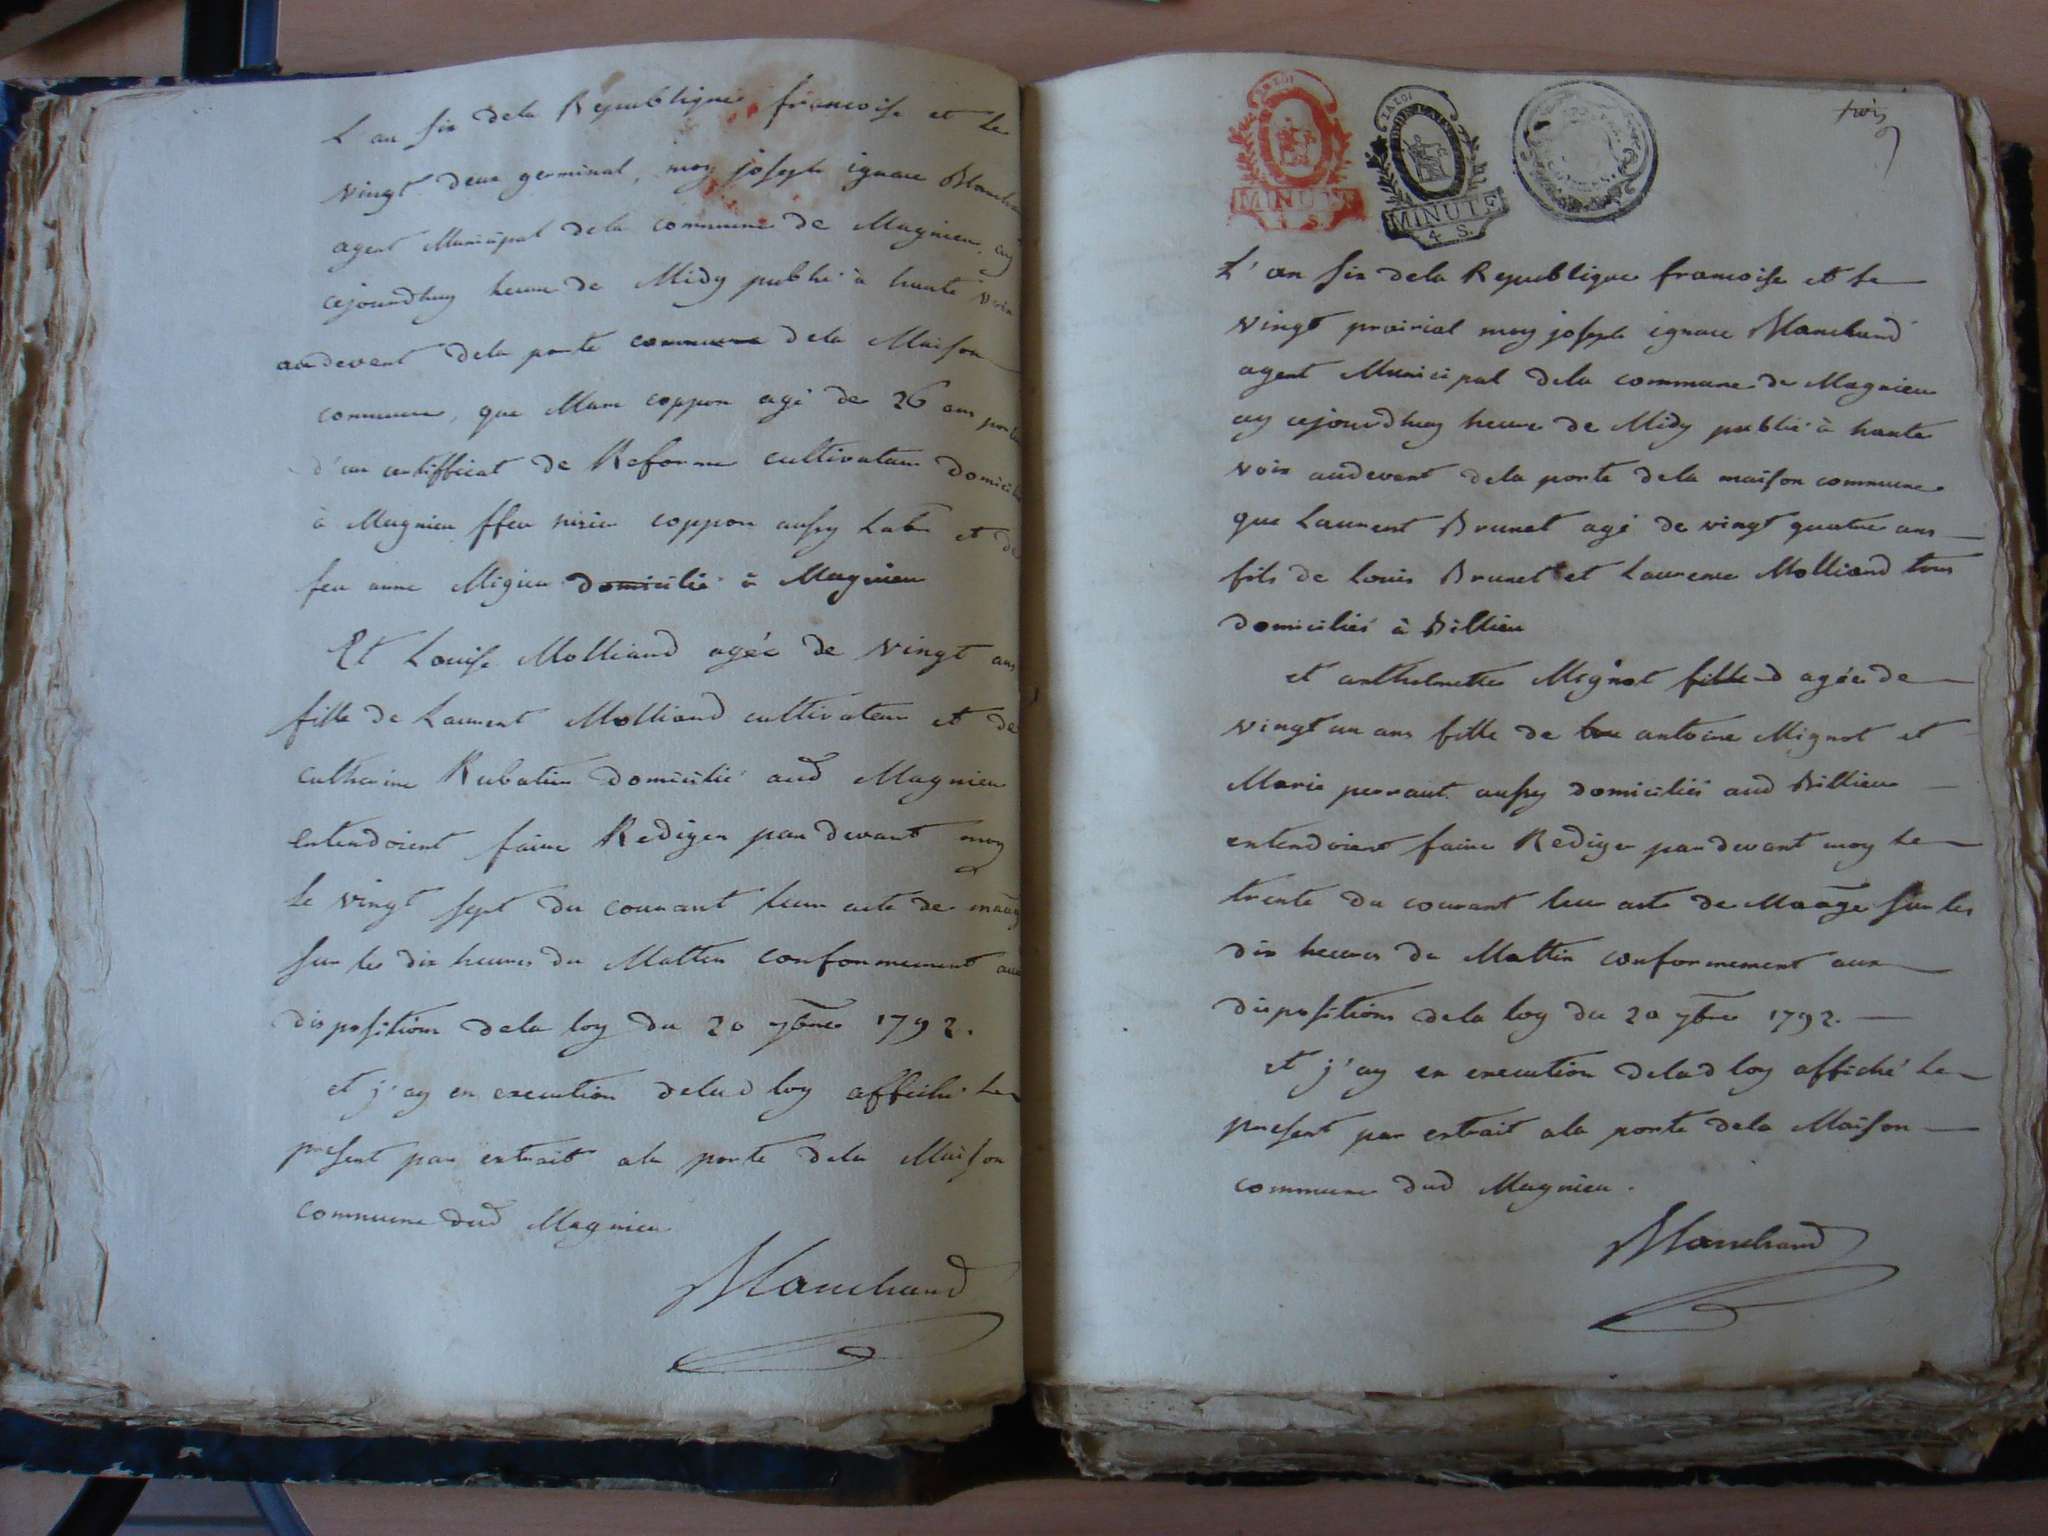 L an six dela Republique francoise et le
vingt deux germinal, moy joseph ignace Blanchard
agent Municipal dela commune de Magnieu, ay
cejourdhuy heure de Midy publié à haute voix
audevant dela porte commune dela Maison
commune, que Marc coppon agé de 26 ans porteur
d'un certifficat de Reforme cultivateur domicilié
à Magnieu ffeu coppon aussy Labr et de
feu anne Migieu domicilié à Magnieu
Et Louise Molliand agée de vingt ans
fille de Laurent Molliand cultivateur et de
catherine Rubatin domicilié aud Magnieu
entendoient faire Rediger pardevant moy
le vingt sept du courant leur acte de mariage
sur les dix heures du Mattin conformement aux
dispositions dela loy du 20 7bre 1792.
et j'ay en execution delad loy affiché le
present par extrait ala porte dela Maison
commune dud Magnieu
Blanchard
trois
LA LOI
MINUTE
4 S.
LA LOI
MINUTE
4 S.
L'an six dela Republique francoise et le
vingt prairial moy joseph ignace Blanchard
agent Municipal dela commune de Magnieu
ay cejourdhuy heure de Midy publié à haute
voix audevant dela porte dela maison commune
que Laurent Brunet agé de vingt quatre ans
fils de Louis Brunet et Laurence Molliand tous
domiciliés à Billieu
et anthelmette Mignot fille d agée de
vingt un ans fille de antoine Mignot et
Marie perraut aussy domiciliés aud Billieu
entendoient faire Rediger pardevant moy le
trente du courant leur acte de Maage sur les
dix heures du Mattin conformement aux
dispositions dela loy du 20 7bre 1792.
et j'ay en execution delad loy affiché le
present par extrait ala porte dela Maison
commune dud Magnieu.
Blanchard